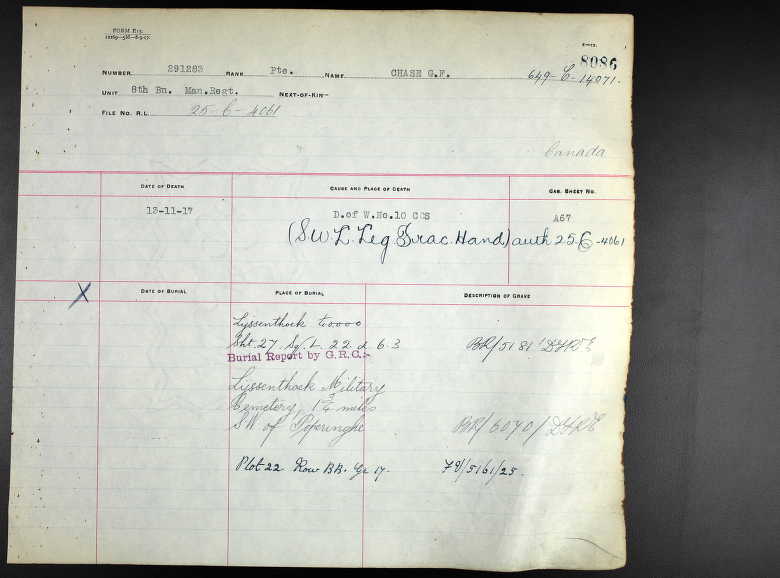 FORM E13.
8086
NUMBER 291283 RANK Pte. NAME CHASE G.F. 649-C-14071.
UNIT 8th Bn. Man.Regt. NEXT-OF-KIN—
FILE NO. R.L. 25-C-4061
Canada
DATE OF DEATH CAUSE AND PLACE OF DEATH CAS. SHEET NO.
13-11-17 D.of W.No.10 CCS A67
(SW. L. Leg. Frac. Hand) auth 25-C-4061
X
DATE OF BURIAL PLACE OF BURIAL DESCRIPTION OF GRAVE
Lyssenthock
Sht. 27. Sq. L. 22. d. 6.3 BR/5181/
Burial Report by G.R.C:-
Lyssenthock Military
Cemetery, 1¾ miles
SW of Poperinghe BR/6070/
Plot 22 Row BB. Gr 17. 78/5161/25.